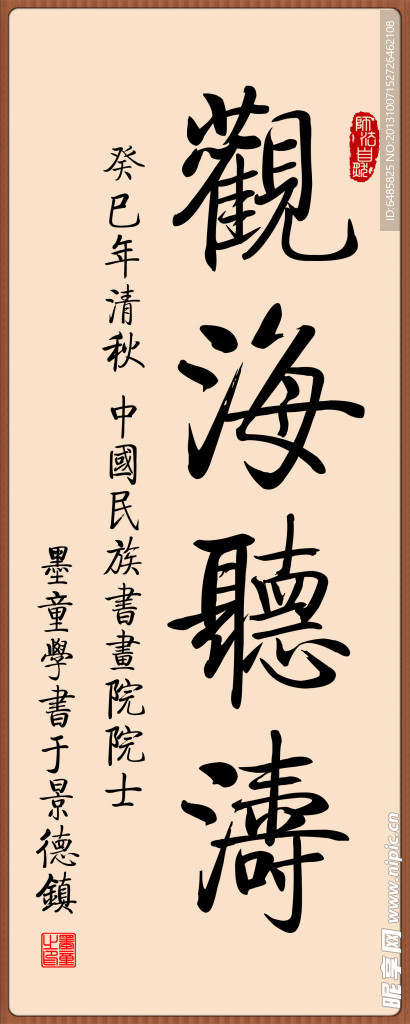 觀海聽濤
癸巳年清秋 中國民族書畫院院士
墨童學書于景德鎮
師法自然
墨童之印
ID:6485825 NO:20131007152726462108
昵享网 www.nipic.cn